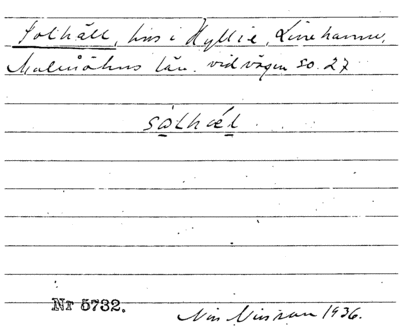 Solhäll, hus i Hyllie, Limhamn,
Malmöhus län. vid vägen so. 27
solhæl
Nr 5732.
Nils Nilsson 1936.